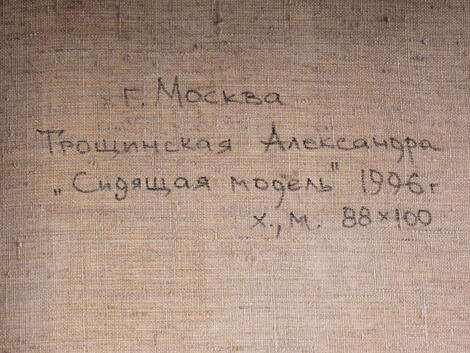 г. Москва
Трощинская Александра
„Сидящая модель" 1996г
х., м. 88×100